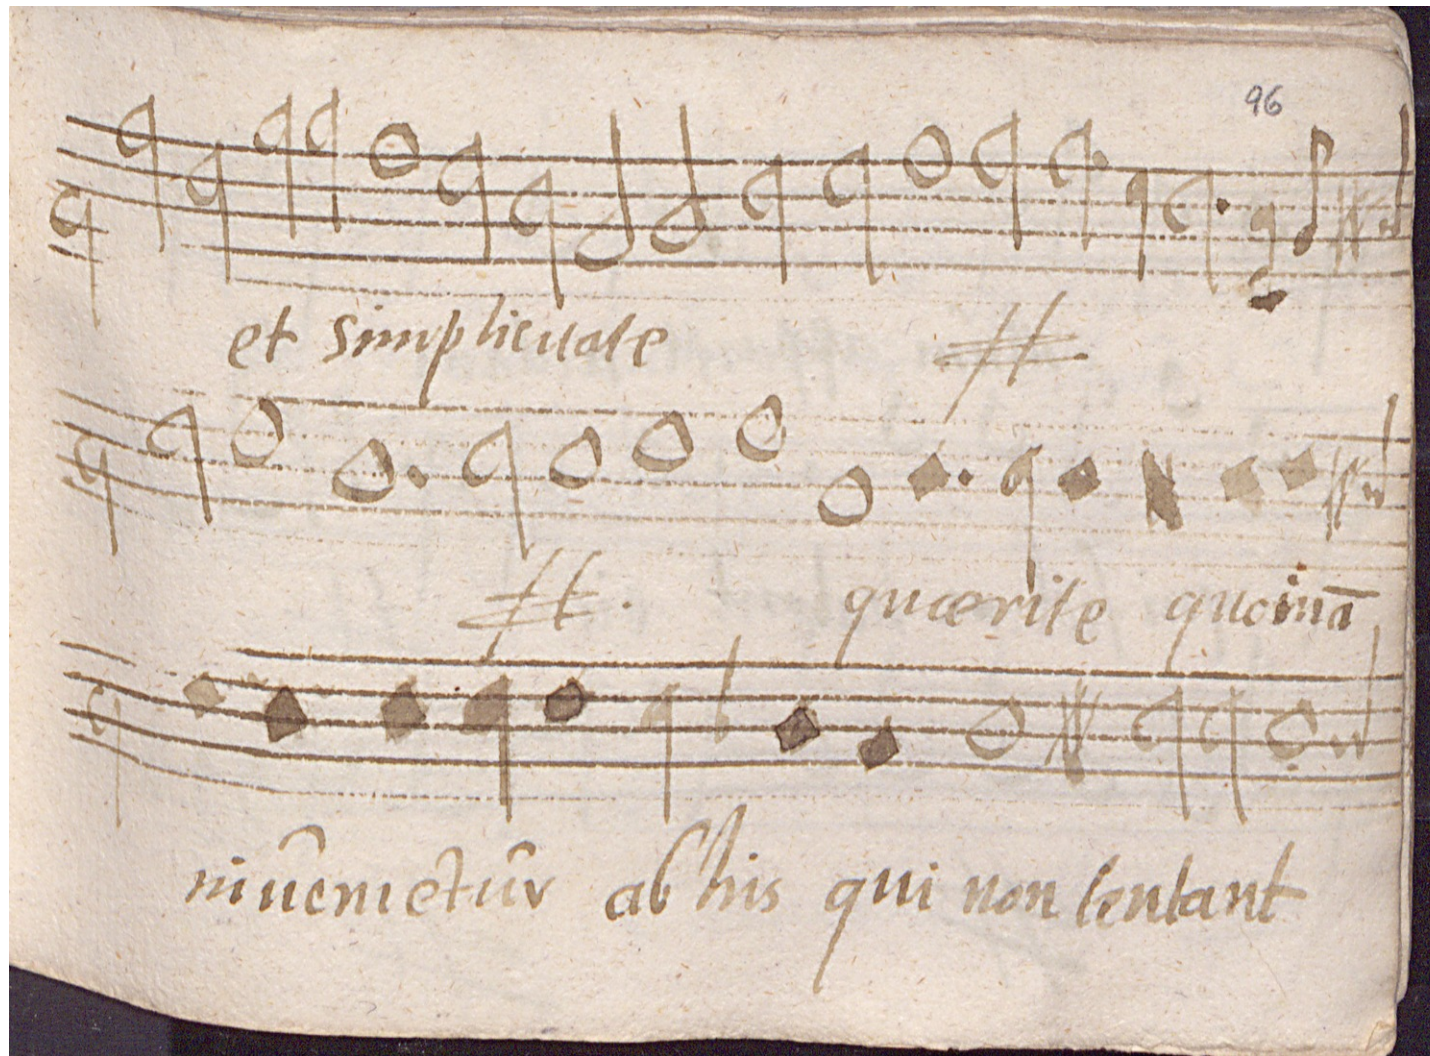 96
et simplicitate
quærite quoniā
invenietur ab his qui non tentant